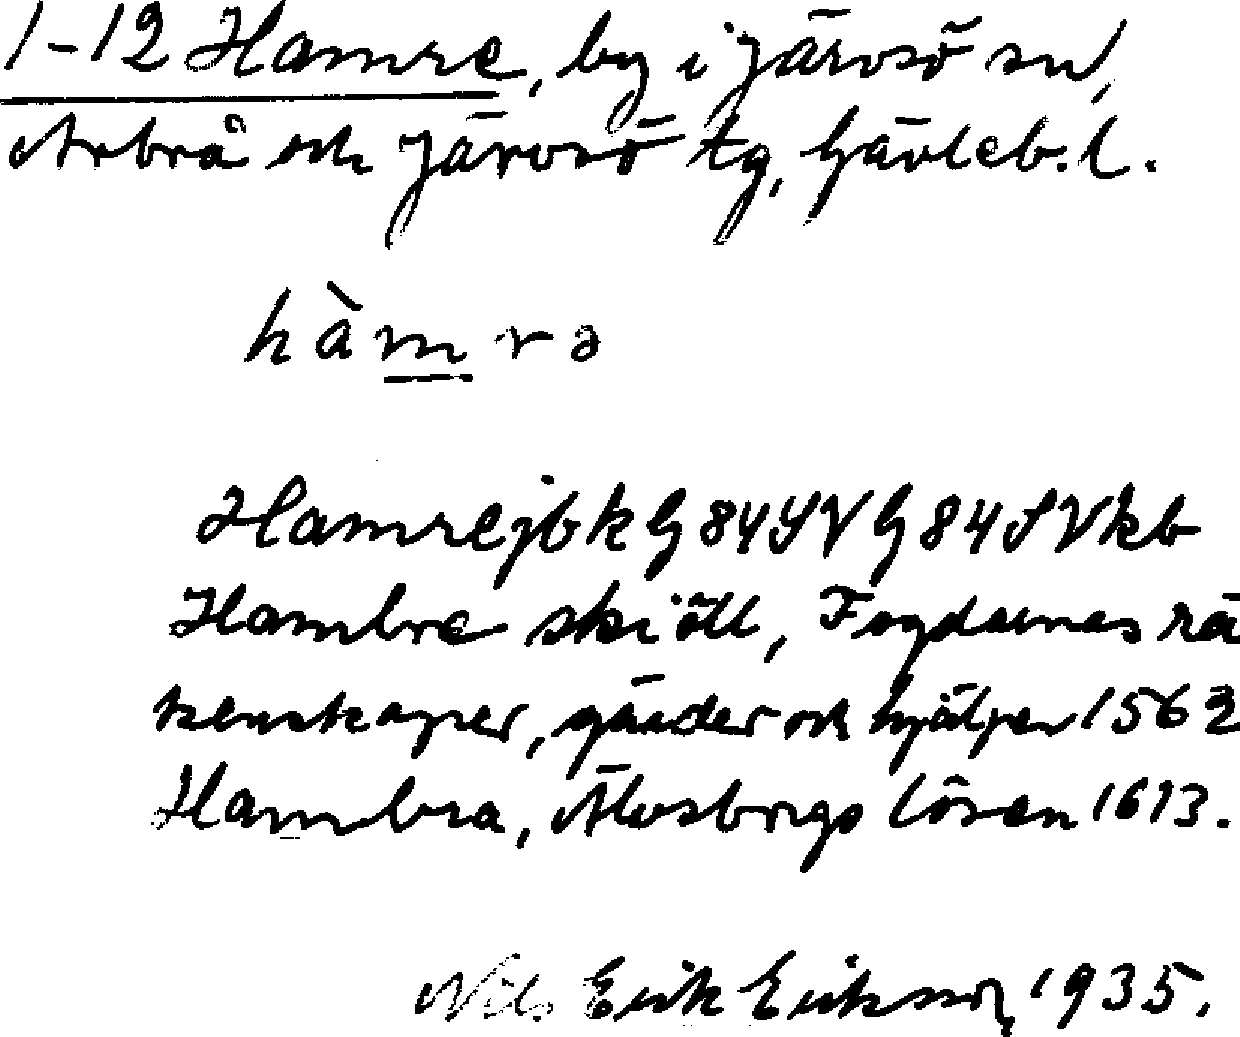 1-12 Hamre, by i Järvsö sn,
Arbrå och Järvsö tg, Gävleb. l.
hàmrə
Hamre jbk G84SV G84SV kb
Hambre skiöll, Fogdarnas rä
kenskaper, gärder och hjälper 1562
Hambra, Älvsborgs lösen 1613.
Nils Erik Eriksson, 1935.